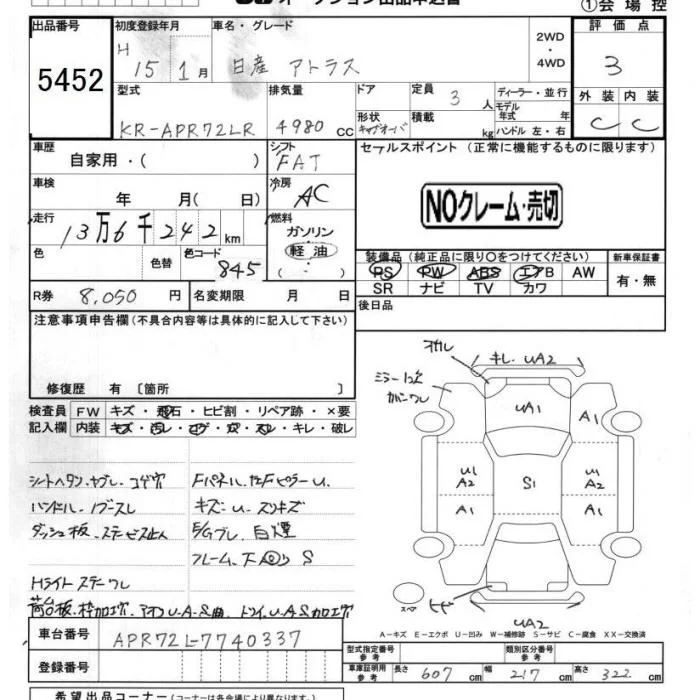 オークション出品申込書
①会場控
出品番号
5452
初度登録年月
H 15 1月
車名・グレード
日産 アトラス
2WD
・
4WD
評価点
3
型式
KR-APR72LR
排気量
4980 cc
ドア
定員
3 人
ディーラー・並行
モデル
年式 年
外装 内装
C C
形状
キャブオーバ
積載
kg
ハンドル 左・右
車歴
自家用・( )
シフト
FAT
セールスポイント (正常に機能するものに限ります)
車検
年 月( 日)
冷房
AC
NOクレーム・売切
走行
13万6千242km
燃料
ガソリン
軽油
( ・ )
色
色替
色コード
845
装備品(純正品に限り〇をつけてください)
新車保証書
PS PW ABS エアB AW
SR ナビ TV カワ
有・無
R券 8,050 円
名変期限 月 日
後日品
注意事項申告欄(不具合内容等は具体的に記入して下さい)
修復歴 有 〔箇所 〕
検査員 FW キズ・飛石・ヒビ割・リペア跡・×要
記入欄 内装 キズ・汚レ・コゲ・穴・スレ・キレ・破レ
キレ・UA2
ミラー
UA1
A1
U1
A2
S1
U1
A2
A1
A1
スペア
UA2
シートヘタン・ヤブレ・コゲ穴
Fパネル、左Fピラー U
ハンドル・ノブスレ
キズ・U・スリキズ
E/Gブレ、白煙
フレーム、下 S
Hライトステーワレ
A−キズ E−エクボ U−凹み W−補修跡 S−サビ C−腐食 XX−交換済
車台番号
APR72L-7740337
型式指定番号
参考
類別区分番号
参考
登録番号
車庫証明用
参考
長さ 607 cm 幅 217 cm 高さ 322 cm
希望出品コーナー(コーナーは各会場により異なります)